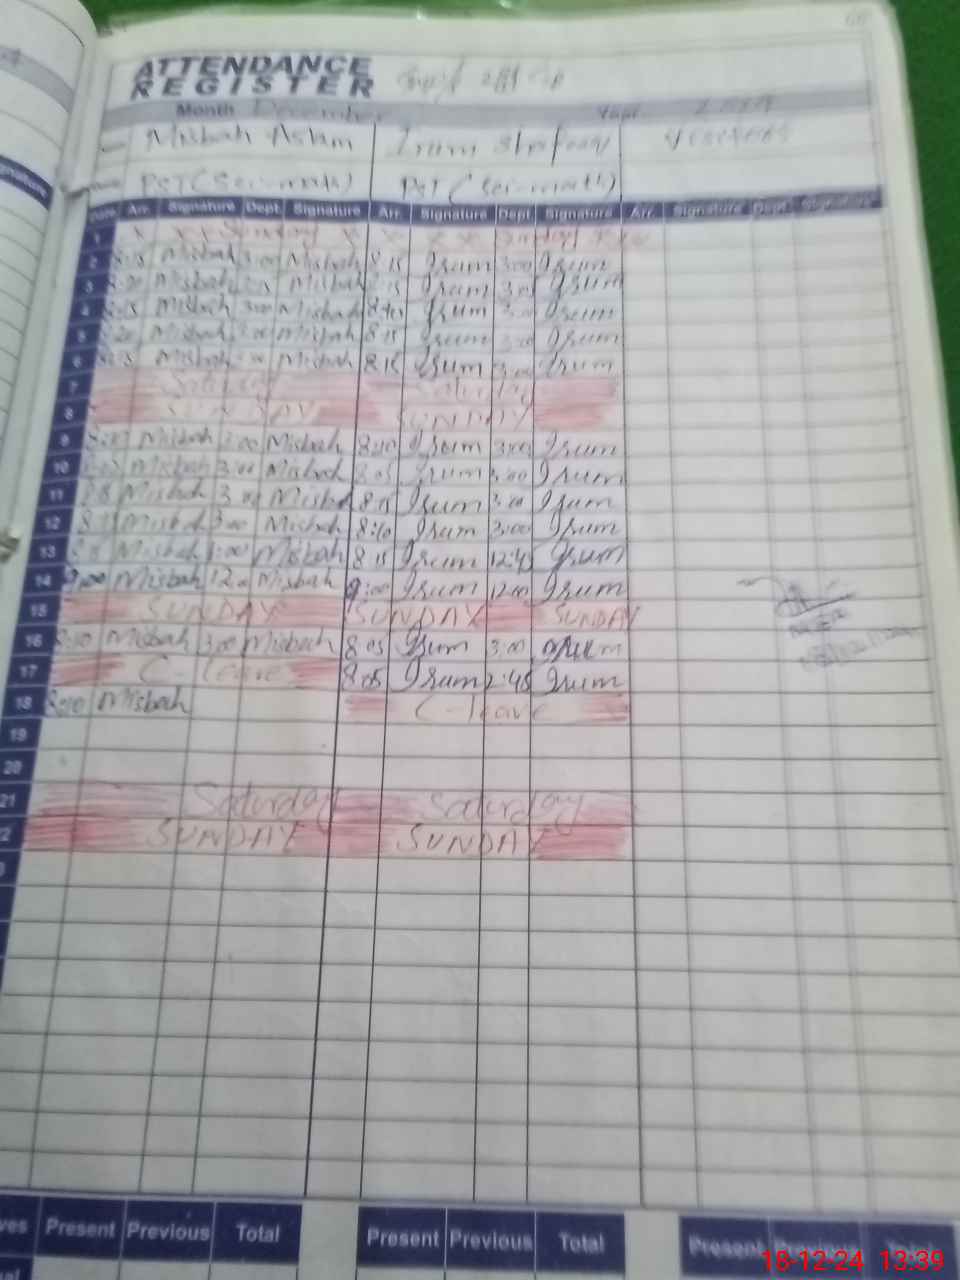 ATTENDANCE
REGISTER
Month December Year
Misbah Aslam Irum
PST (Sci-math) PST (Sci-math)
Date Arr. Signature Dept. Signature Arr. Signature Dept. Signature Arr. Signature Dept. Signature
1 x x x Sunday x x x x Sunday x
2 8:15 Misbah 3:00 Misbah 8:15 Irum 3:00 Irum
3 8:20 Misbah Misbah 8:15 Irum 3:00 Irum
4 8:15 Misbah 3:00 Misbah Irum 3:00 Irum
5 8:20 Misbah 3:00 Misbah 8:15 Irum 3:00 Irum
6 8:15 Misbah Misbah 8:15 Irum 3:00 Irum
7 Saturday Saturday
8 SUNDAY SUNDAY
9 Misbah 3:00 Misbah 8:10 Irum 3:00 Irum
10 Misbah 3:00 Misbah 8:05 Irum 3:00 Irum
11 Misbah 3:00 Misbah 8:15 Irum 3:00 Irum
12 Misbah 3:00 Misbah 8:10 Irum 3:00 Irum
13 Misbah Misbah 8:15 Irum 12:45 Irum
14 9:00 Misbah 12:00 Misbah 9:00 Irum 12:00 Irum
15 SUNDAY SUNDAY SUNDAY
16 8:10 Misbah 3:00 Misbah 8:05 Irum 3:00 Irum
17 C-leave 8:05 Irum 2:45 Irum
18 8:10 Misbah C-leave
19
20
21 Saturday Saturday
22 SUNDAY SUNDAY
Present Previous Total Present Previous Total Present Previous Total
18-12-24 13:39